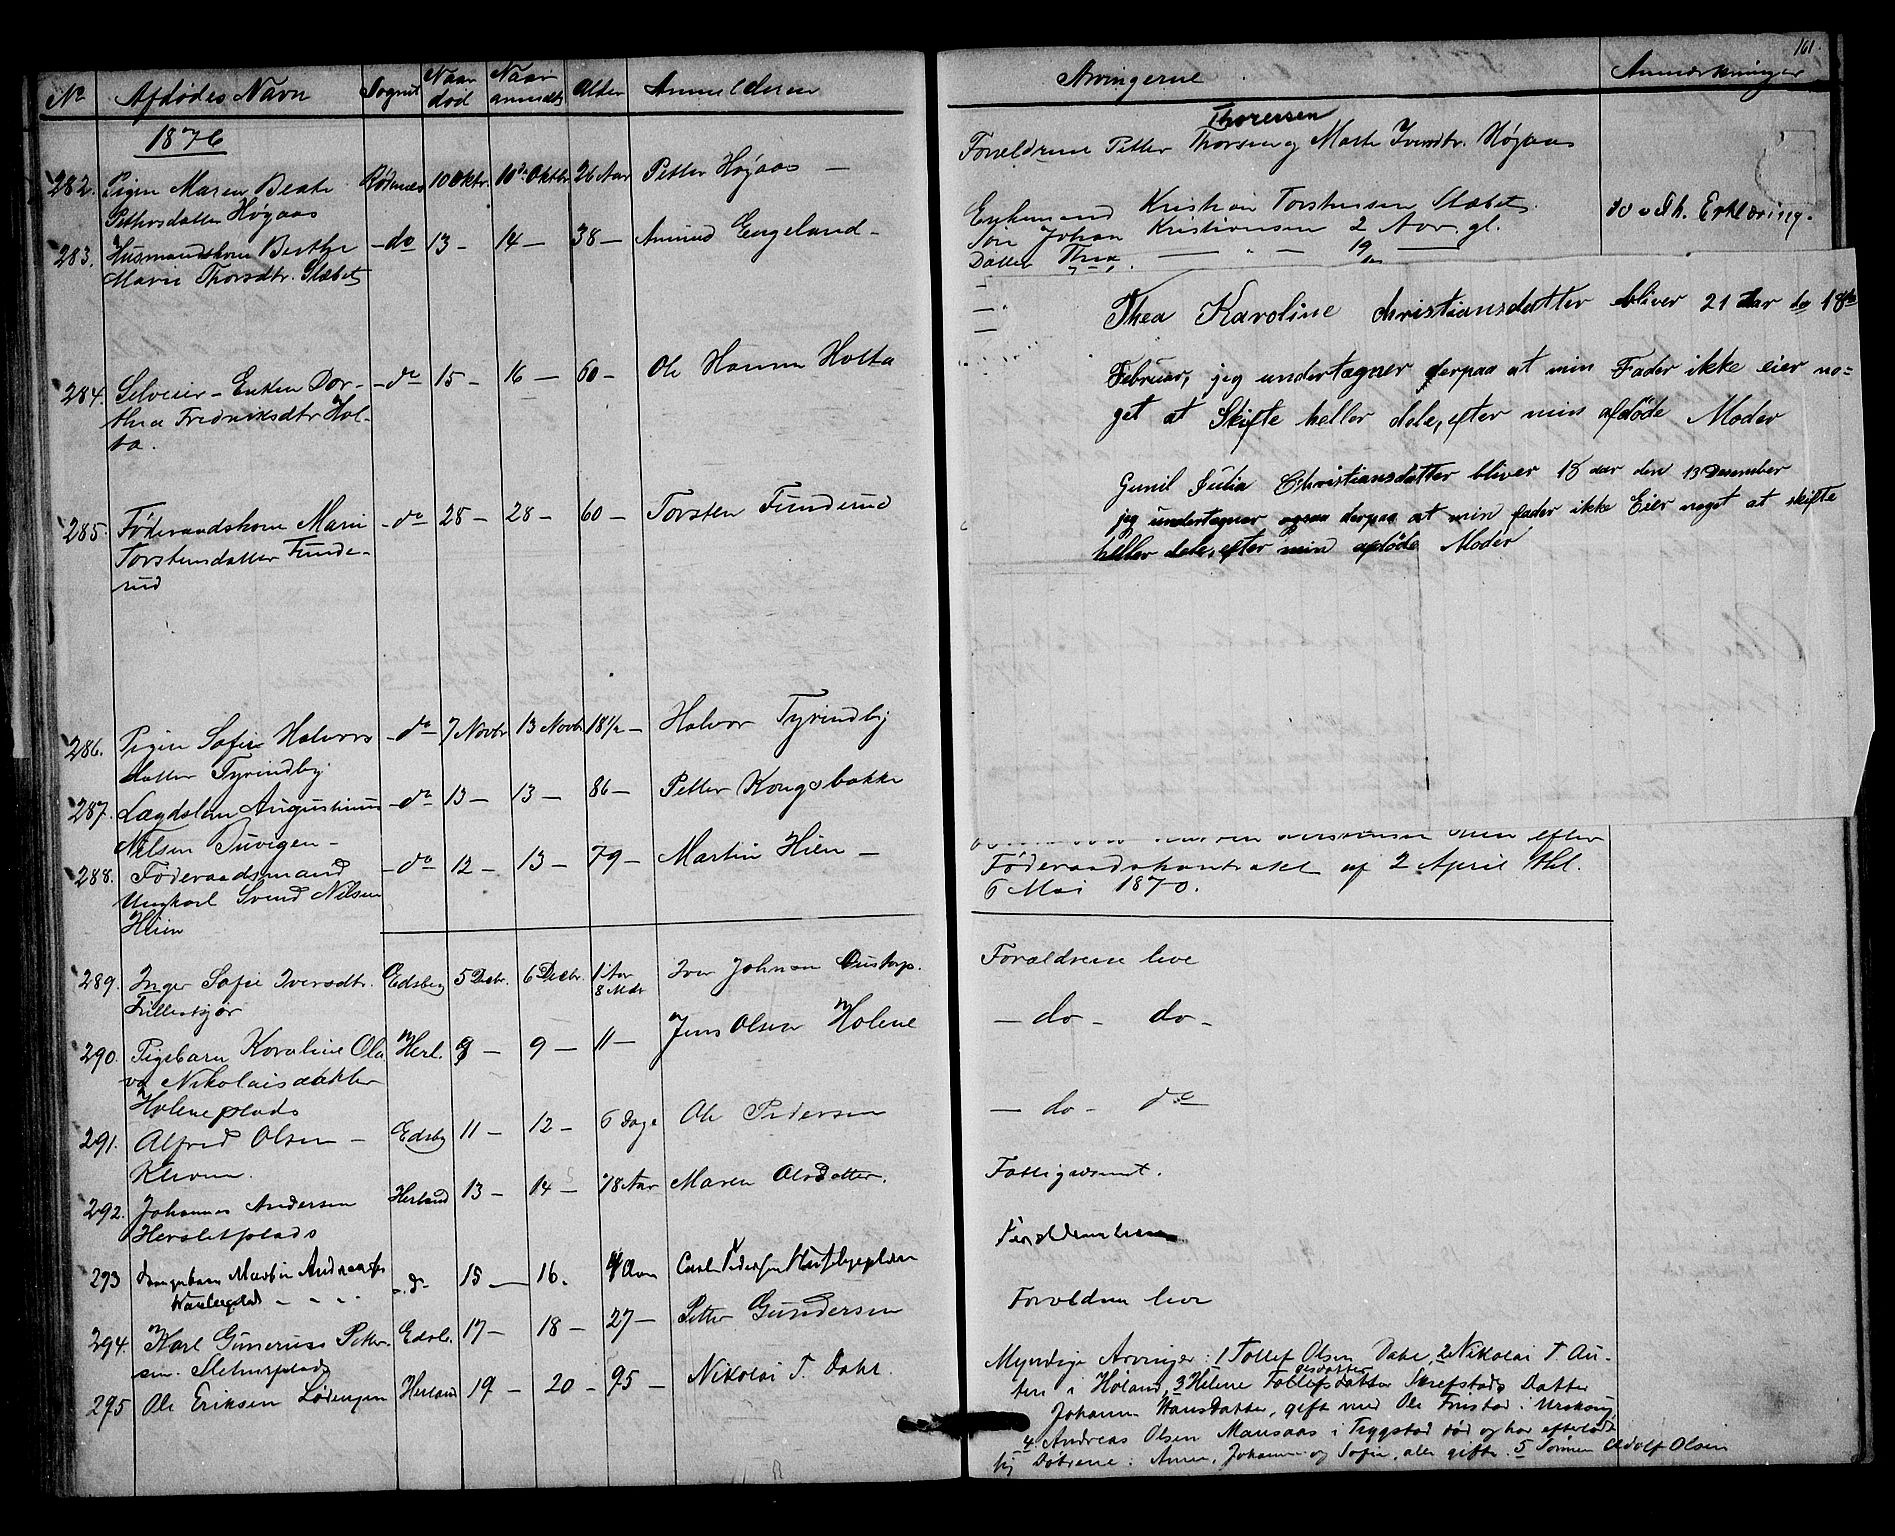 161.
No Afdødes Navn Sognet Naar død Naar anmeldt Alder Anmelderen Arvingerne Anmærkninger
1876
282. Pigen Maren Beate Rødenes 10 Oktr. 10de Oktbr 26 Aar Petter Høgaas —
Pettersdatter Høgaas
Thoresen
Forældrene Petter Thorsen og Marte Iversdtr. Høgaas
283. Husmandskone Berthe - do 13 - 14 - 38 - Amund Engeland -
Marie Thorsdtr. Slæbet
Enkemand Kristian Torstensen Slæbet.
Søn Johan Kristiansen 2 Aar gl.
Datter Thea — " — 19
do o Sk. Erklæring.
Thea Karoline Christiansdatter bliver 21 aar den 18de
Februar, jeg undertegner derpaa at min Fader ikke eier no=
get at Skifte heller dele, efter min afdøde Moder
Gunil Julia Christiansdatter bliver 18 aar den 13 Desember
jeg undertegner ogsaa derpaa at min fader ikke Eier noget at skifte
heller dele, efter min afdøde Moder
284. Selveier - Enken Dor- - do 15 - 16 - 60 - Ole Hansen Holta
thea Fredriksdtr Hol-
ta.
285. Føderaadskone Marie - do 28 - 28 - 60 - Torsten Funderud
Torstensdatter Funde-
rud
286. Pigen Sofie Halvors - do 7 Novbr 13 Novbr 18 1/2 - Halvor Tyrindby
datter Tyrindby
287. Lægdslem Augustinus - do 13 - 13 - 86 - Petter Kongsbakke
Nilsen Tuvigen -
288. Føderaadsmand - do 12 - 13 - 79 - Martin Hien -
Ungkarl Svend Nilsen
Hien
efter
Føderaadskontrakt af 2 April thl.
6 Mai 1870.
289. Inger Sofie Iversdtr. Edsberg 5 Decbr. 6 Decbr. 1 Aar 8 Mdr Iver Johnsen Oustorp. Forældrene leve
Lilleskjør
290. Pigebarn Karoline Ola Herl. 8 - 9 - 11 - Jens Olsen Holene — do - do -
va Nikolaisdatter
Holeneplads
291. Alfred Olsen - Edsbg 11 - 12 - 6 Dage Ole Pedersen — do - do
Kleven.
292. Johannes Andersen Herland 13 - 14 - 78 Aar Maren Olsdatter. Fattiglemt.
Hersletplads
293 Martin Andreas - do - 15 — 16. 4 Aar Carl Pedersen Forældrene leve
294. Karl Gunerius Petter- Edsb. 17 - 18 - 27 - Petter Gundersen Forældrene leve
sen. Sletnerplads
295 Ole Eriksen Løvengen Herland 19 - 20 - 95 - Nikolai T. Dahl
Myndige Arvinger: 1 Tollef Olsen Dahl, 2 Nikolai T. Au-
ten i Høland, 3 Helene Tollefsdatter Skrefstads Datter
Johanne Hansdatter, gift med Ole Fristad i Urskoug
4 Andreas Olsen Mansaas i Tryggstad død og har efterladt
sig Døtrene: Anne, Johanne og Sofie, alle gifte. 5 Sønnen Adolf Olsen